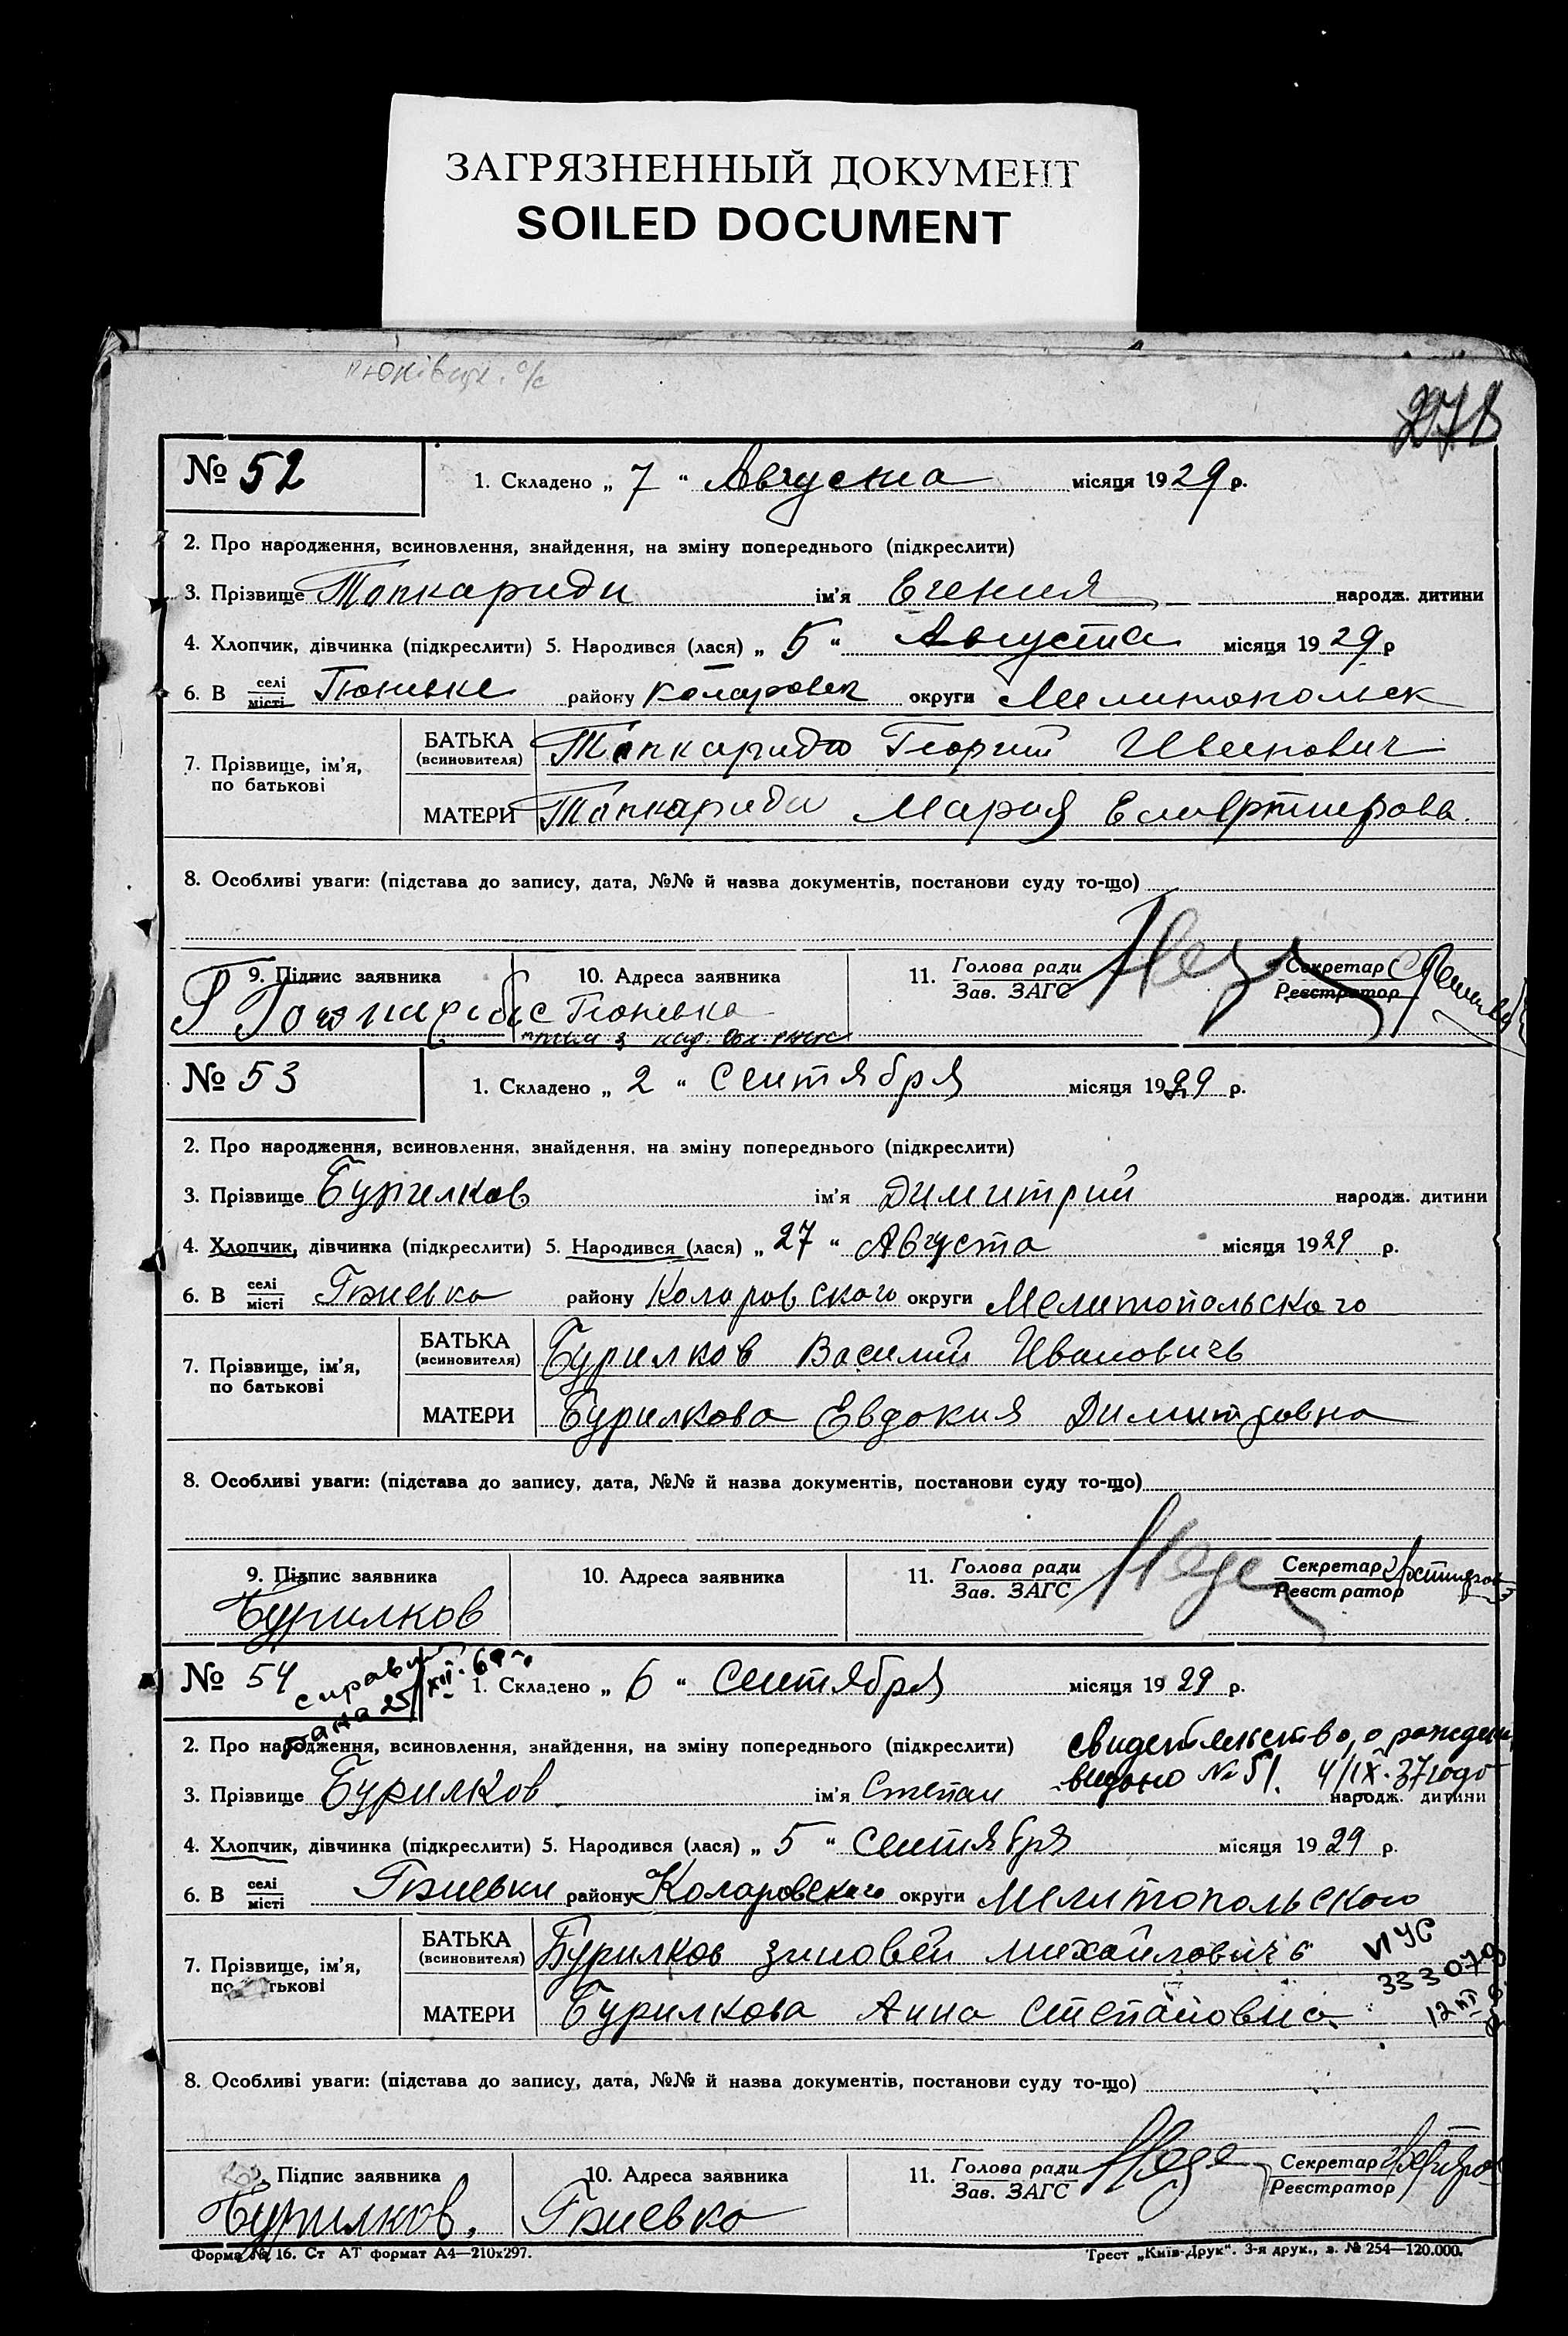 ЗАГРЯЗНЕННЫЙ ДОКУМЕНТ
SOILED DOCUMENT
278
№ 52
1. Складено „ 7 “ Августа місяця 1929 р.
2. Про народження, всиновлення, знайдення, на зміну попереднього (підкреслити)
3. Прізвище Топкариди ім'я Егения народж. дитини
4. Хлопчик, дівчинка (підкреслити) 5. Народився (лася) „ 5 “ Августа місяця 1929 р
6. В селі місті Гюневке району Коларовск округи Мелитопольск
7. Прізвище, ім'я, по батькові
БАТЬКА (всиновителя) Топкариди Георгий Иванович
МАТЕРИ Топкариди Мария
8. Особливі уваги: (підстава до запису, дата, №№ й назва документів, постанови суду то-що)
9. Підпис заявника 10. Адреса заявника 11. Голова ради Зав. ЗАГС Секретар Реєстратор
с Гюневка
№ 53
1. Складено „ 2 “ Сентября місяця 1929 р.
2. Про народження, всиновлення, знайдення, на зміну попереднього (підкреслити)
3. Прізвище Бурилков ім'я Димитрий народж. дитини
4. Хлопчик, дівчинка (підкреслити) 5. Народився (лася) „ 27 “ Августа місяця 1929 р.
6. В селі місті Гюневка району Коларовского округи Мелитопольского
7. Прізвище, ім'я, по батькові
БАТЬКА (всиновителя) Бурилков Василий Ивановичь
МАТЕРИ Бурилкова Евдокия Димитровна
8. Особливі уваги: (підстава до запису, дата, №№ й назва документів, постанови суду то-що)
9. Підпис заявника 10. Адреса заявника 11. Голова ради Зав. ЗАГС Секретар Реєстратор
Бурилков
№ 54
1. Складено „ 6 “ Сентября місяця 1929 р.
2. Про народження, всиновлення, знайдення, на зміну попереднього (підкреслити)
свидетельство о рожден
видано № 51. 4/IX-37 года
3. Прізвище Бурилков ім'я Степан народж. дитини
4. Хлопчик, дівчинка (підкреслити) 5. Народився (лася) „ 5 “ Сентября місяця 1929 р.
6. В селі місті Гюневки району Коларовского округи Мелитопольского
7. Прізвище, ім'я, по батькові
БАТЬКА (всиновителя) Бурилков Зиновей Михайловичь
МАТЕРИ Бурилкова Анна Степановна
8. Особливі уваги: (підстава до запису, дата, №№ й назва документів, постанови суду то-що)
9. Підпис заявника 10. Адреса заявника 11. Голова ради Зав. ЗАГС Секретар Реєстратор
Бурилков. Гюневка
Форма № 16. Ст АТ формат А4—210х297.
Трест „Київ-Друк“. 3-я друк., з. № 254—120.000.